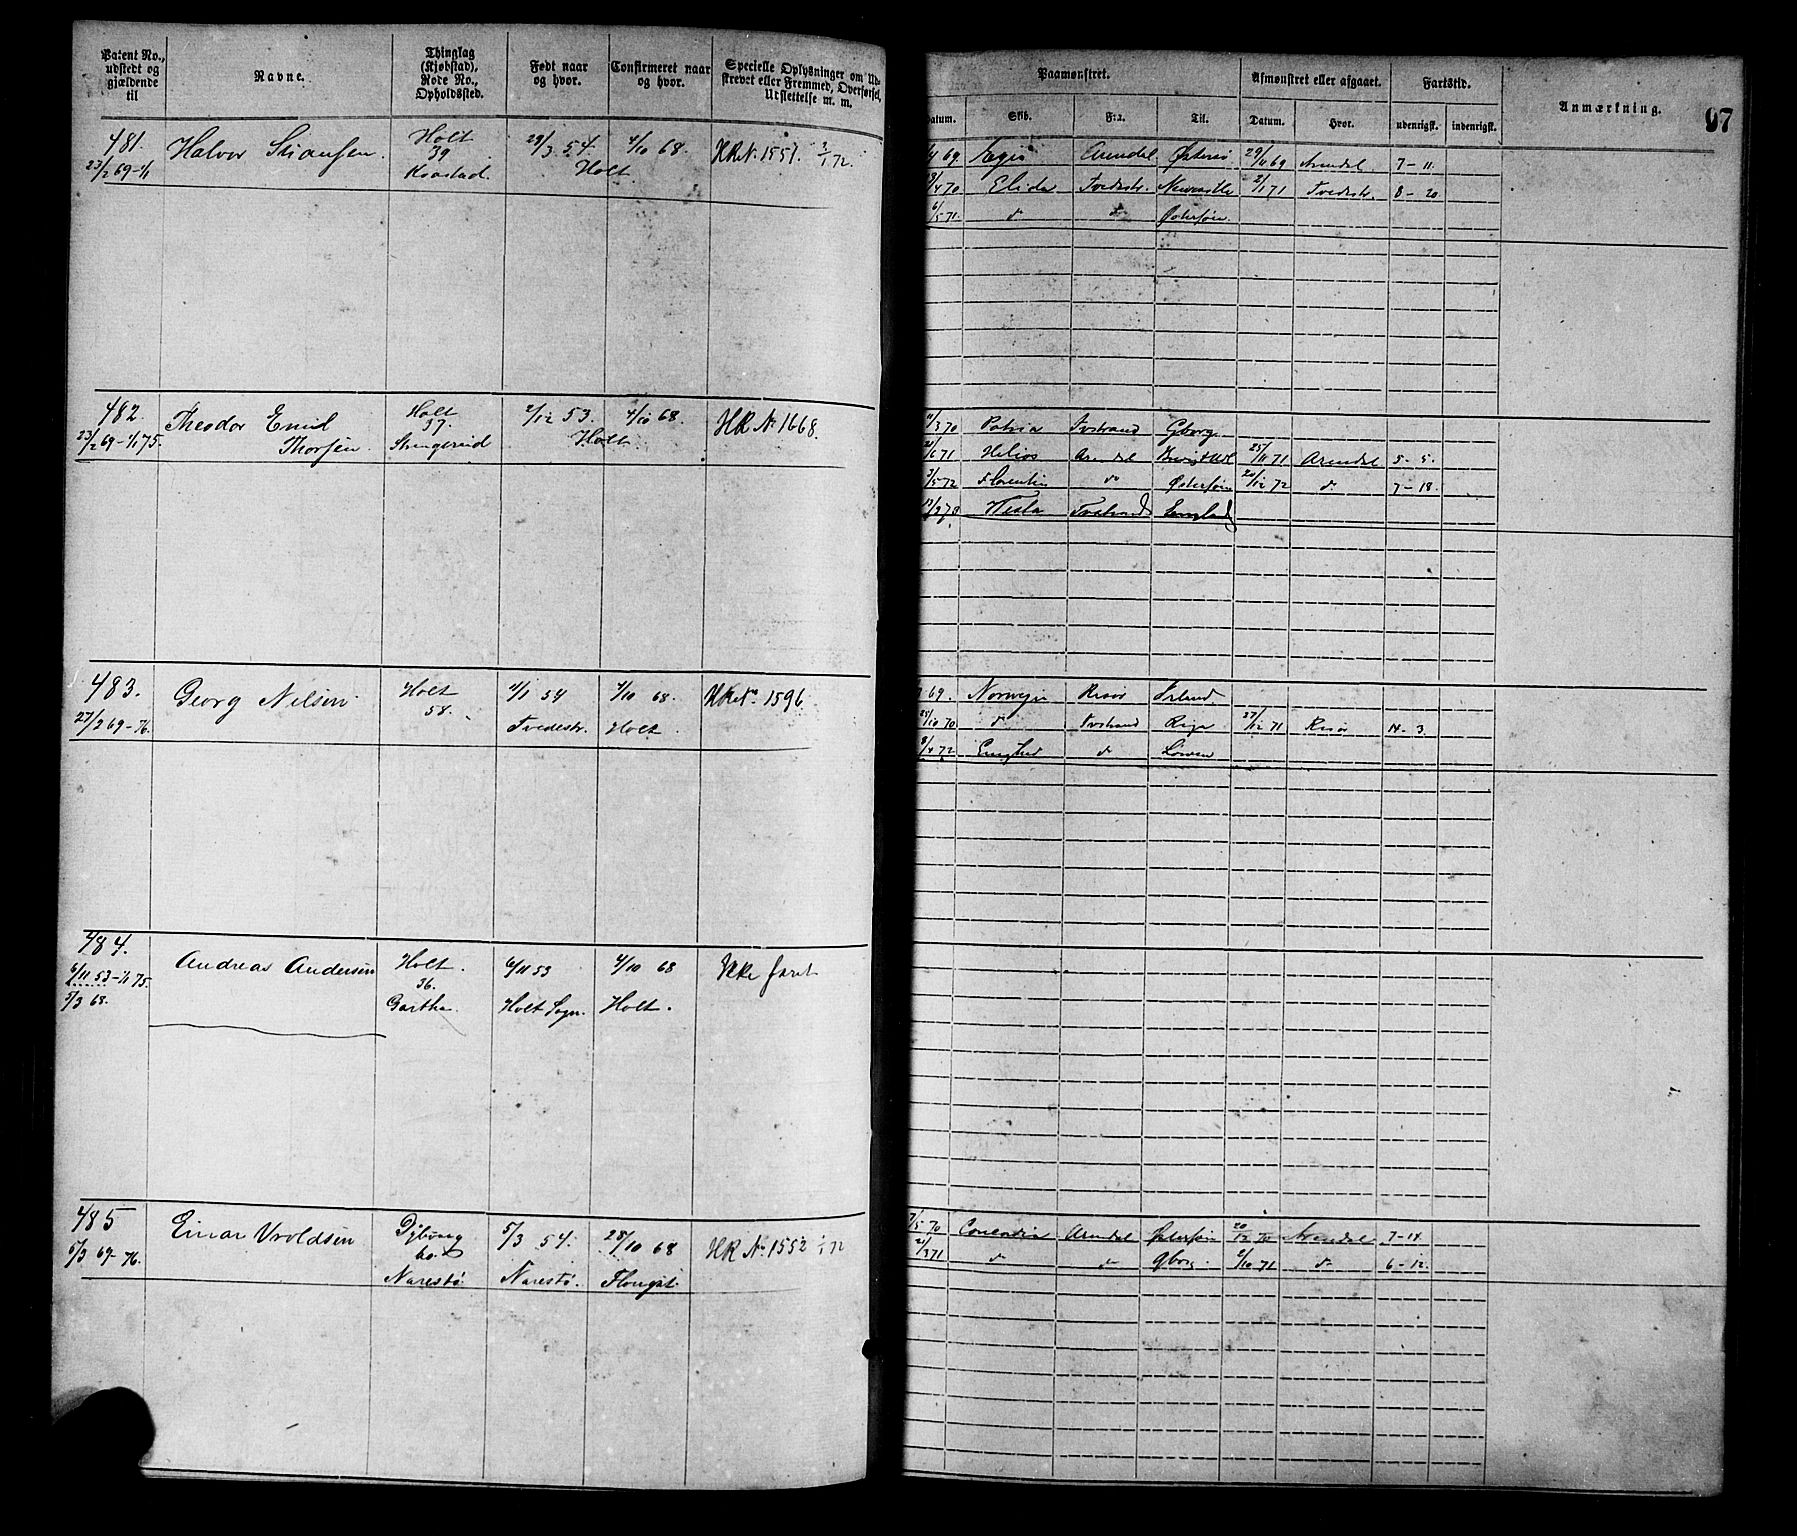 Patent No., udstedt og gjældende til
Navne.
Thinglag (Kjøbstad), Rode No., Opholdssted.
Født naar og hvor.
Confirmeret naar og hvor.
Specielle Oplysninger om Udskrevet eller Fremmed, Overførsel, Udslettelse m. m.
Paamønstret.
Afmønstret eller afgaaet.
Fartstid.
Anmærkning.
97
Datum.
Skib.
Fra.
Til.
Datum.
Hvor.
udenrigsk.
indenrigsk.
481.
Halvor
Holt
39
29/3 54
4/10 68.
Holt
HR N. 1551. 2/1 72.
23/2 69-1/1
/4 69
Arendal
Østersø
29/11 69
Arendal
7-11
/4 70
Elida
Tvedestr.
Newcastle
2/1 71
Tvedestr.
8-20
6/5 71.
do
do
Østersøen.
482.
Theodor Emil
Thorsen.
Holt
37.
2/12 53.
4/10 68.
Holt
HR N 1668.
23/2 69-1/1 75.
/3 70
Tvstrand
Gborg
/6 71
Helios
Arendal
25/11 71
Arendal
5-5.
3/5 72
Florentin
do
Østersøen
20/12 72
do
7-18.
/2 73
Tvstrand
483.
Georg Nilsen
Holt
58.
4/1 54
Tvedestr.
4/10 68.
Holt.
HR No 1596.
27/2 69-76.
69.
Norwegen
Risør
/10 70
do
Tvstrand
Riga
27/12 71
Risør
14-3
8/4 72
do
484.
Andreas Andersen
Holt.
36.
Gartha.
6/11 53
Holt Sogn.
4/10 68
Holt.
Ikke faret
6/11 53-1/1 75.
5/3 68.
485
Einar Vroldsen
Dybvaag
60.
Narestø
5/3 54.
Narestø.
28/10 68
HR No 1552 1/1 72
5/3 69-76.
/5 70
Concordia
Arendal
Østersøen
20/12 70
Arendal
7-14
21/3 71
do
do
Gborg.
2/10 71
do
6-12.